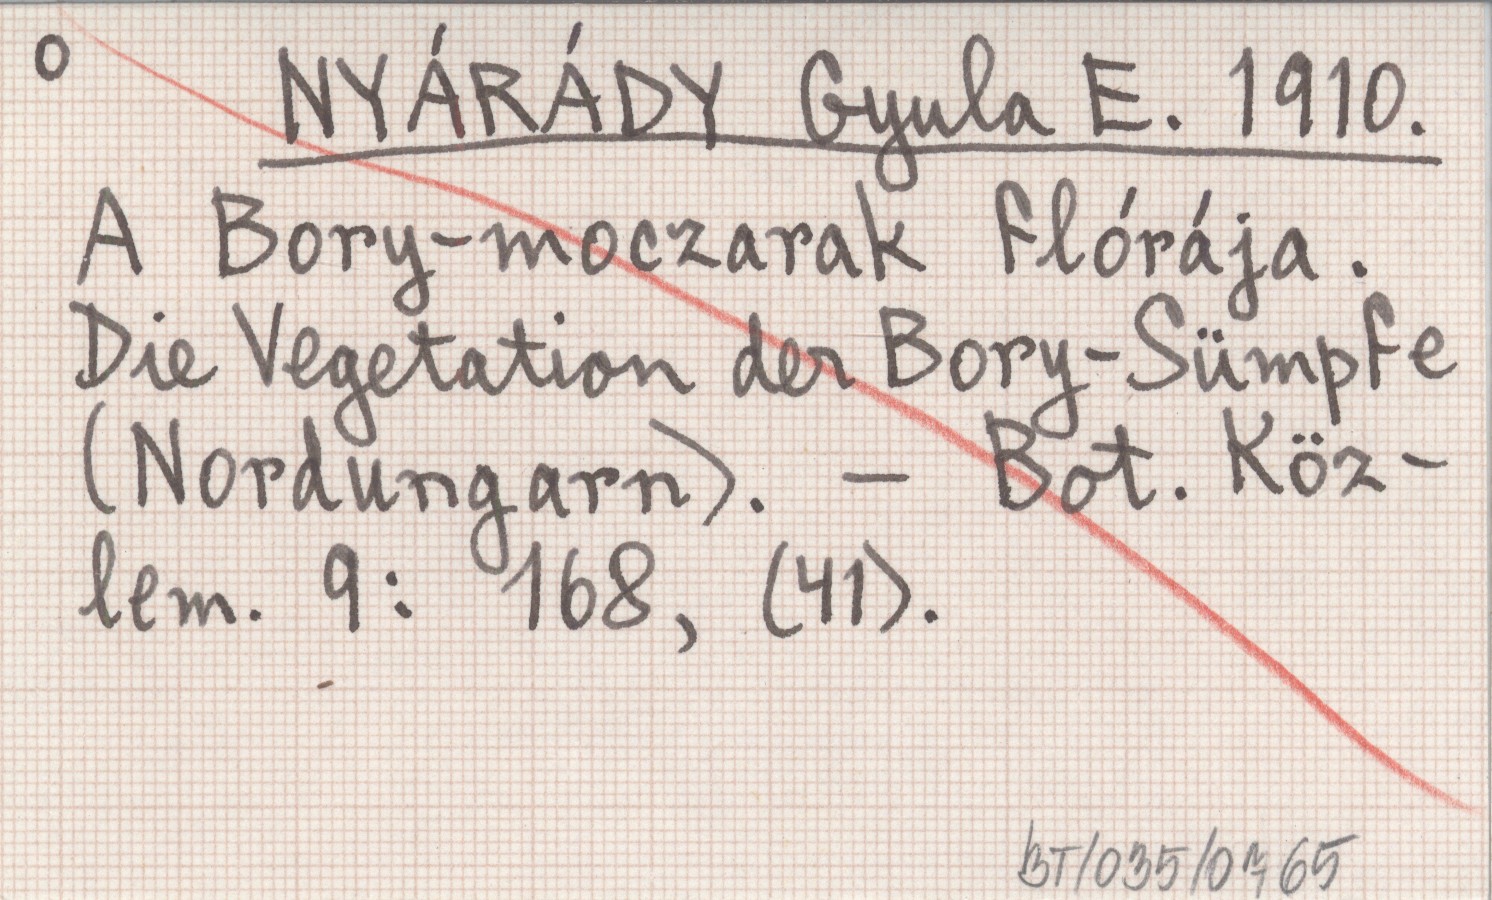 o NYÁRÁDY Gyula E. 1910.
A Bory-moczarak flórája.
Die Vegetation der Bory-Sümpfe
(Nordungarn). — Bot. Köz-
lem. 9: 168, (41).